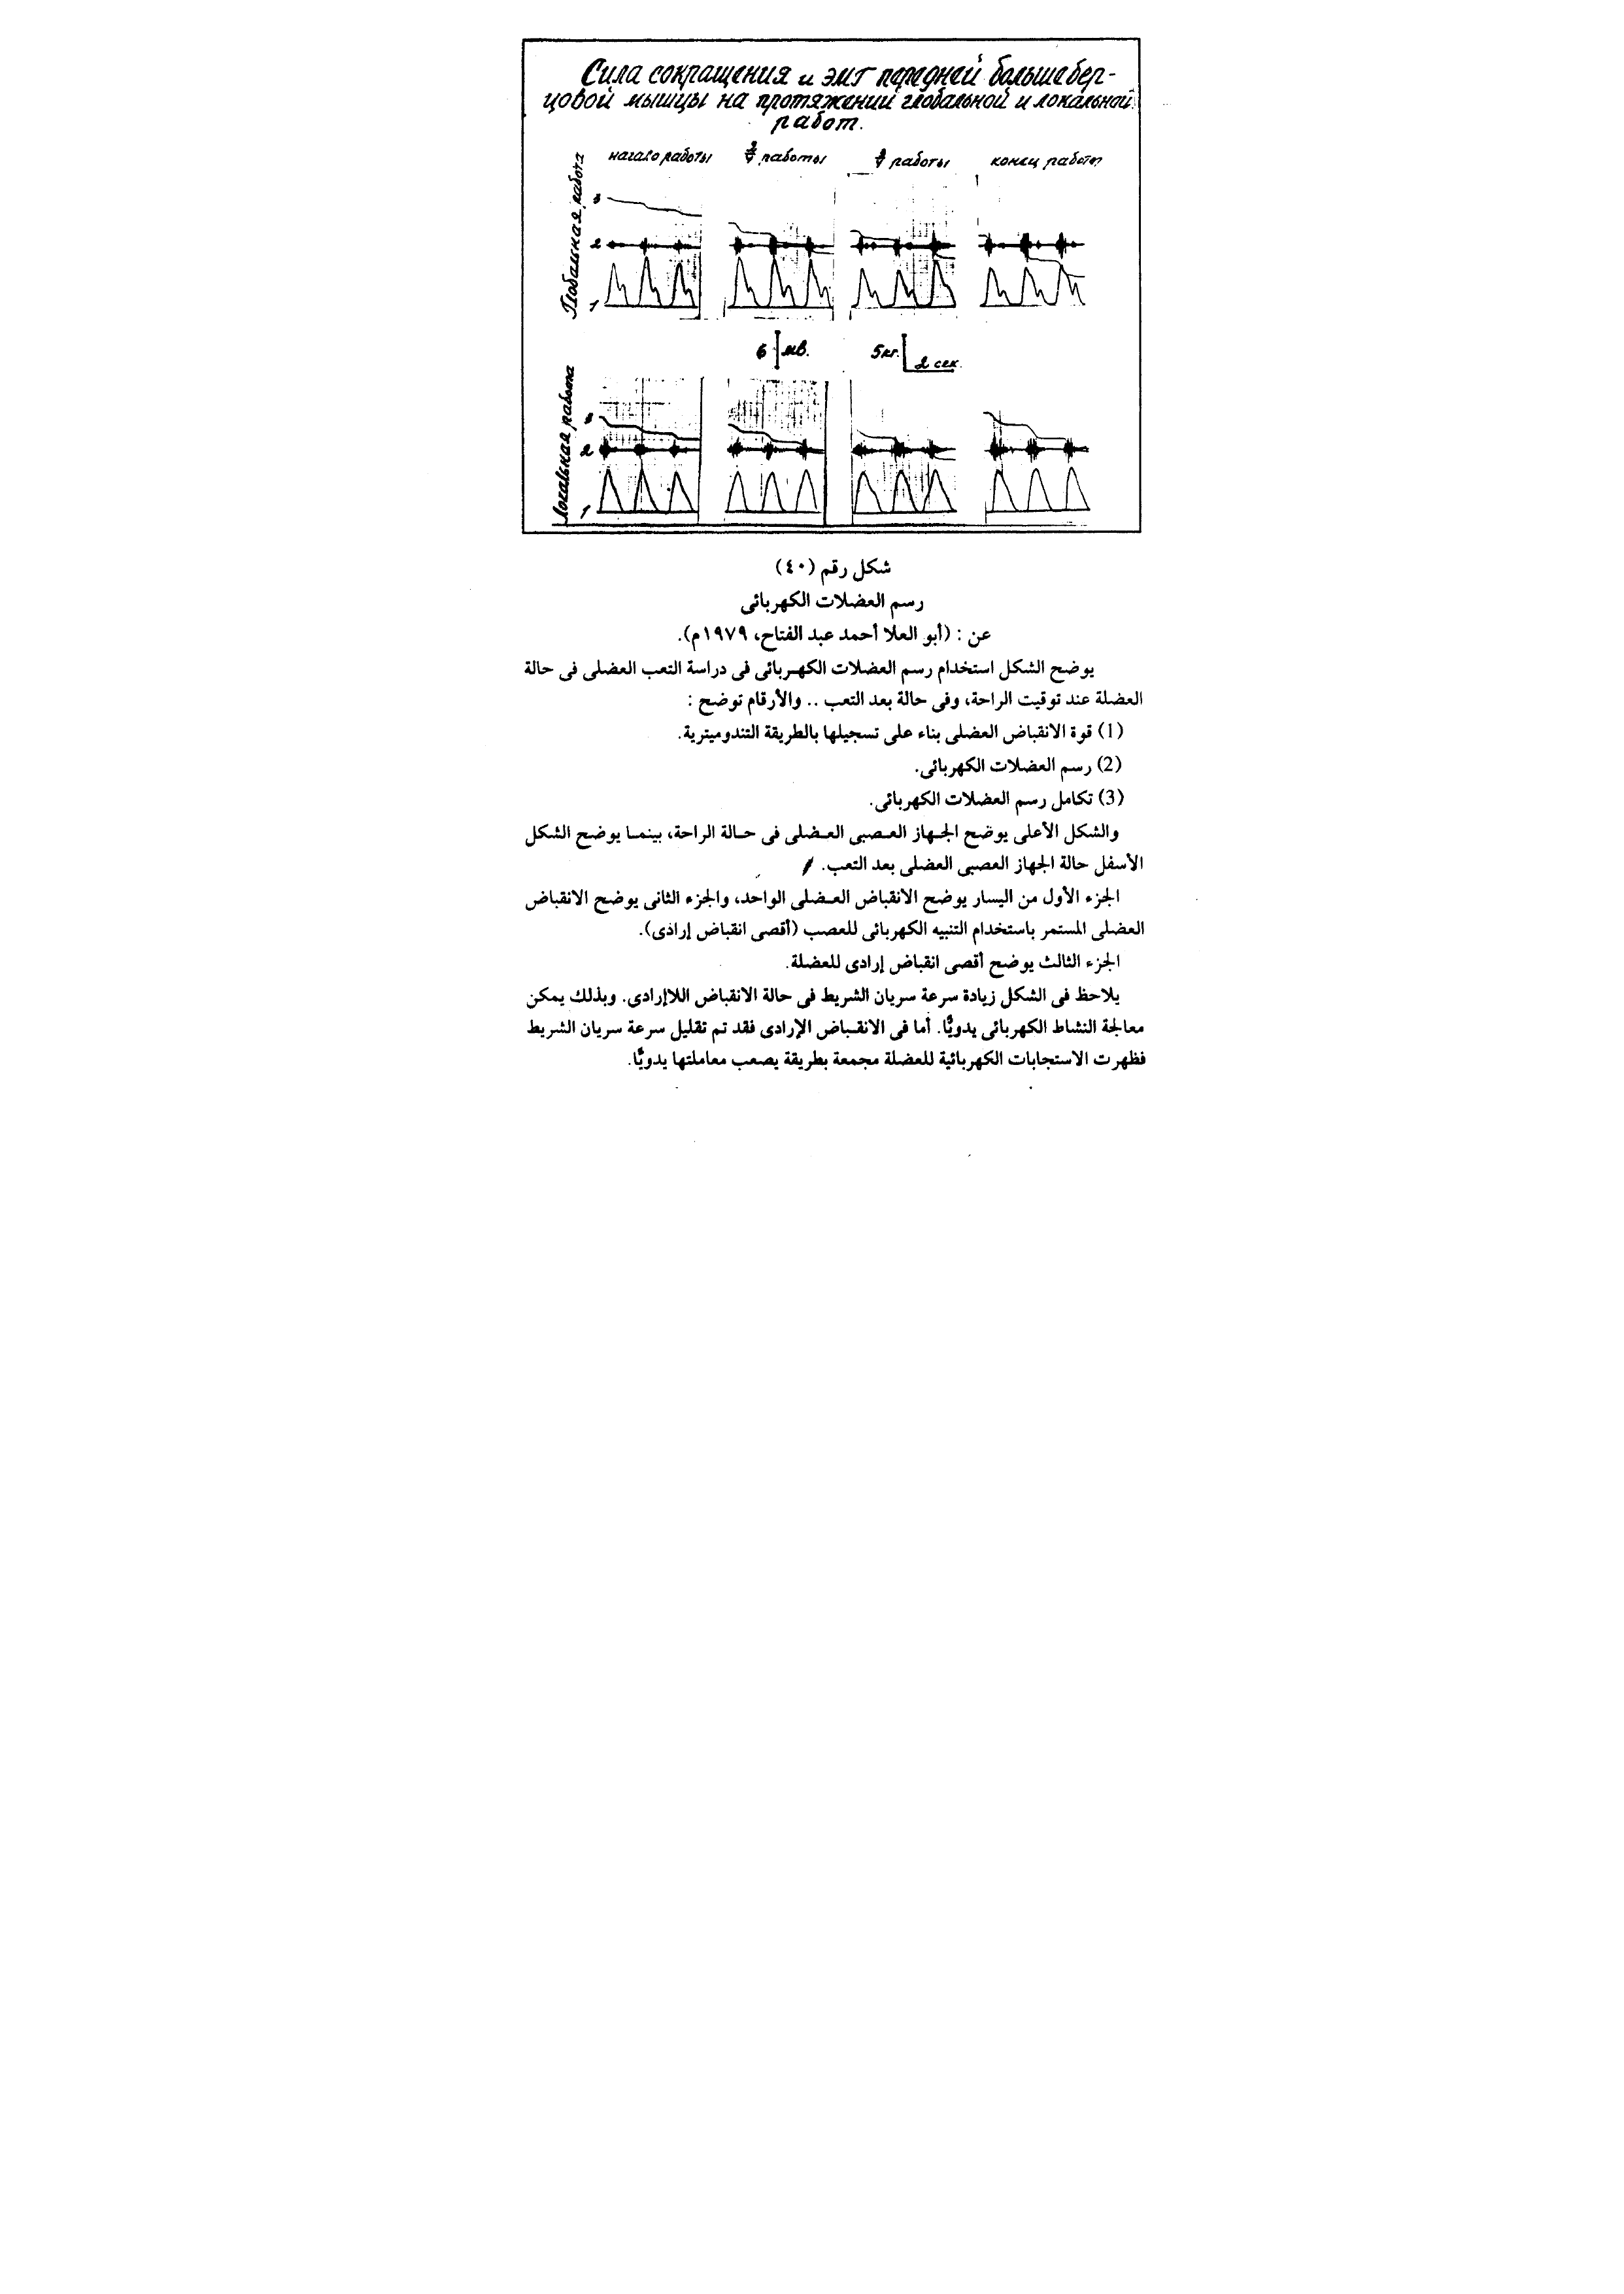 Сила сокращения и ЭМГ передней большебер-
цовой мышцы на протяжений глобальной и локальной
работ.
начало работы
работы
работы
конец работ
Глобальная работа
3
2
1
6 мв.
5кг.
2 сек.
Локальная работа
3
2
1
شكل رقم (٤٠)
رسم العضلات الكهربائى
عن : (أبو العلا أحمد عبد الفتاح، ١٩٧٩م).
يوضح الشكل استخدام رسم العضلات الكهربائى فى دراسة التعب العضلى فى حالة
العضلة عند توقيت الراحة، وفى حالة بعد التعب .. والأرقام توضح :
(1) قوة الانقباض العضلى بناء على تسجيلها بالطريقة التندوميترية.
(2) رسم العضلات الكهربائى.
(3) تكامل رسم العضلات الكهربائى.
والشكل الأعلى يوضح الجهاز العصبى العضلى فى حالة الراحة، بينما يوضح الشكل
الأسفل حالة الجهاز العصبى العضلى بعد التعب.
الجزء الأول من اليسار يوضح الانقباض العضلى الواحد، والجزء الثانى يوضح الانقباض
العضلى المستمر باستخدام التنبيه الكهربائى للعصب (أقصى انقباض إرادى).
الجزء الثالث يوضح أقصى انقباض إرادى للعضلة.
يلاحظ فى الشكل زيادة سرعة سريان الشريط فى حالة الانقباض اللاإرادى. وبذلك يمكن
معالجة النشاط الكهربائى يدويًّا. أما فى الانقباض الإرادى فقد تم تقليل سرعة سريان الشريط
فظهرت الاستجابات الكهربائية للعضلة مجمعة بطريقة يصعب معاملتها يدويًّا.